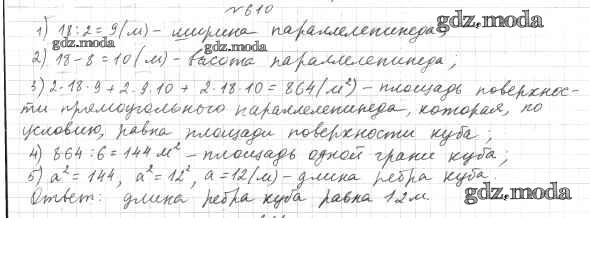 №610
1) 18:2=9(м) - ширина параллелепипеда; gdz.moda
gdz.moda gdz.moda
2) 18-8=10(м) - высота параллелепипеда;
3) 2·18·9+2·9·10+2·18·10=864(м²) - площадь поверхнос-
ти прямоугольного параллелепипеда, которая, по
условию, равна площади поверхности куба;
4) 864:6=144 м² - площадь одной грани куба;
5) a²=144, a²=12², a=12(м) - длина ребра куба.
Ответ: длина ребра куба равна 12 м. gdz.moda